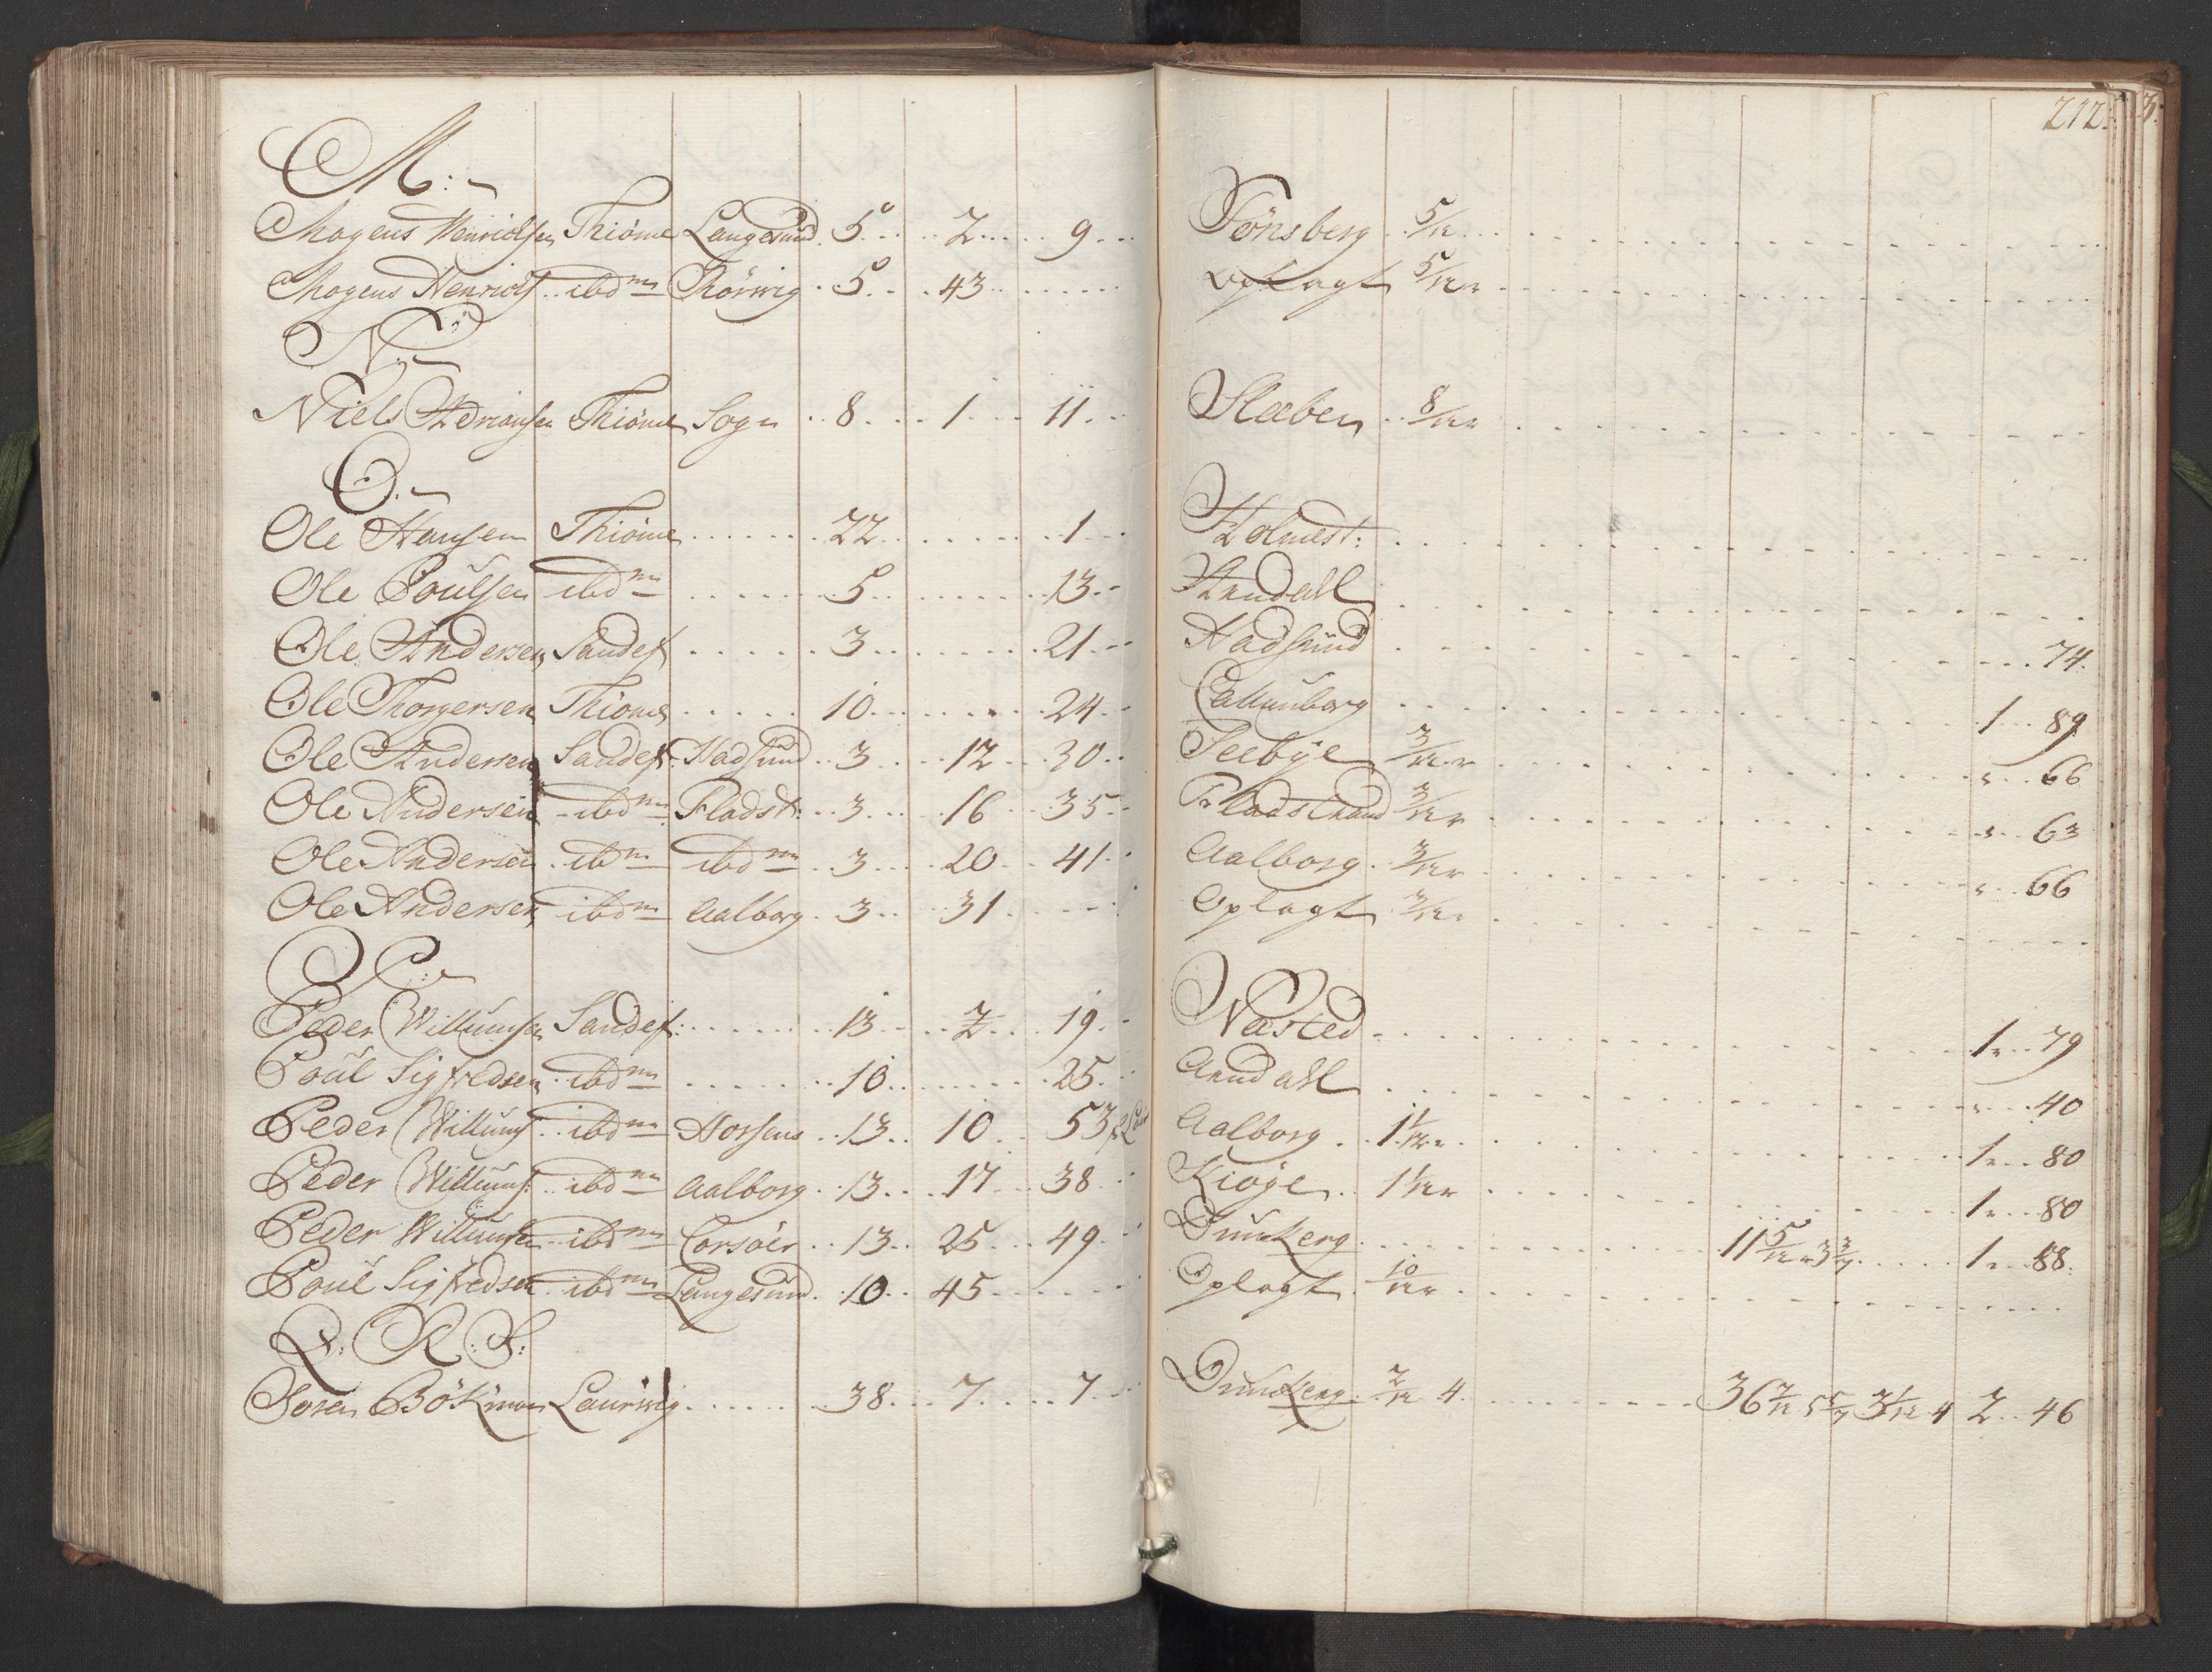 M:
Mogens Henrichsen Thiöme Langesund 5 2 9
Mogens Henrichs ibdm Körwig 5 43
N:
Niels Adriansen Thiöme Sogn 8 1 11
O.
Ole Hansen Thiöme 22 1
Ole Poulsen ibdm 5 13
Ole Andersen Sandef 3 21
Ole Thorgersen Thiöme 10 24
Ole Andersen Sandef: Hadsund 3 12 30
Ole Andersen ibdm Fladst: 3 16 35
Ole Andersen ibdm ibdm 3 20 41
Ole Andersen ibdm Aalborg 3 31
P:
Peder Willumsen Sandef: 13 2 19
Poul Sigfredsen ibdm 10 25
Peder Willums ibdm Horsens 13 10 53
Peder Willums: ibdm Aalborg 13 17 38
Peder Willumsen ibdm Corsöer 13 25 49
Poul Sigfredsen ibdm Langesund 10 45
Q: R: S:
Sören Bökman Laurwig 38 7 7
212.
Tönsberg 5/12
Oplagt 5/12
Sleeben 8/12
Holmest:
Arendall
Hadsund 74
Callunborg 1 89
Seebye 3/12 66
Fladstrand 3/12 63
Aalborg 3/12 66
Oplagt 3/12
Nästed 1 79
Arendall 40
Aalborg 1 1/12 1 80
Kiöge 1 1/12 1 80
Dunkerq 11 5/12 3 3/7 1 88
Oplagt 10/12
Dunkerq: 2/12 4 36 7/12 5 5/7 3 1/12 4 2 46